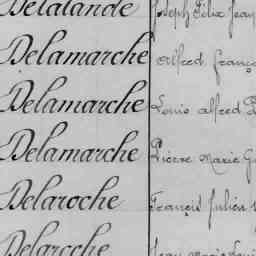 Delalande Joseph Félix Jean
Delamarche Alfred França
Delamarche Louis Alfred
Delamarche Pierre Marie
Delaroche François Julien
Delaroche Jean Marie Louis